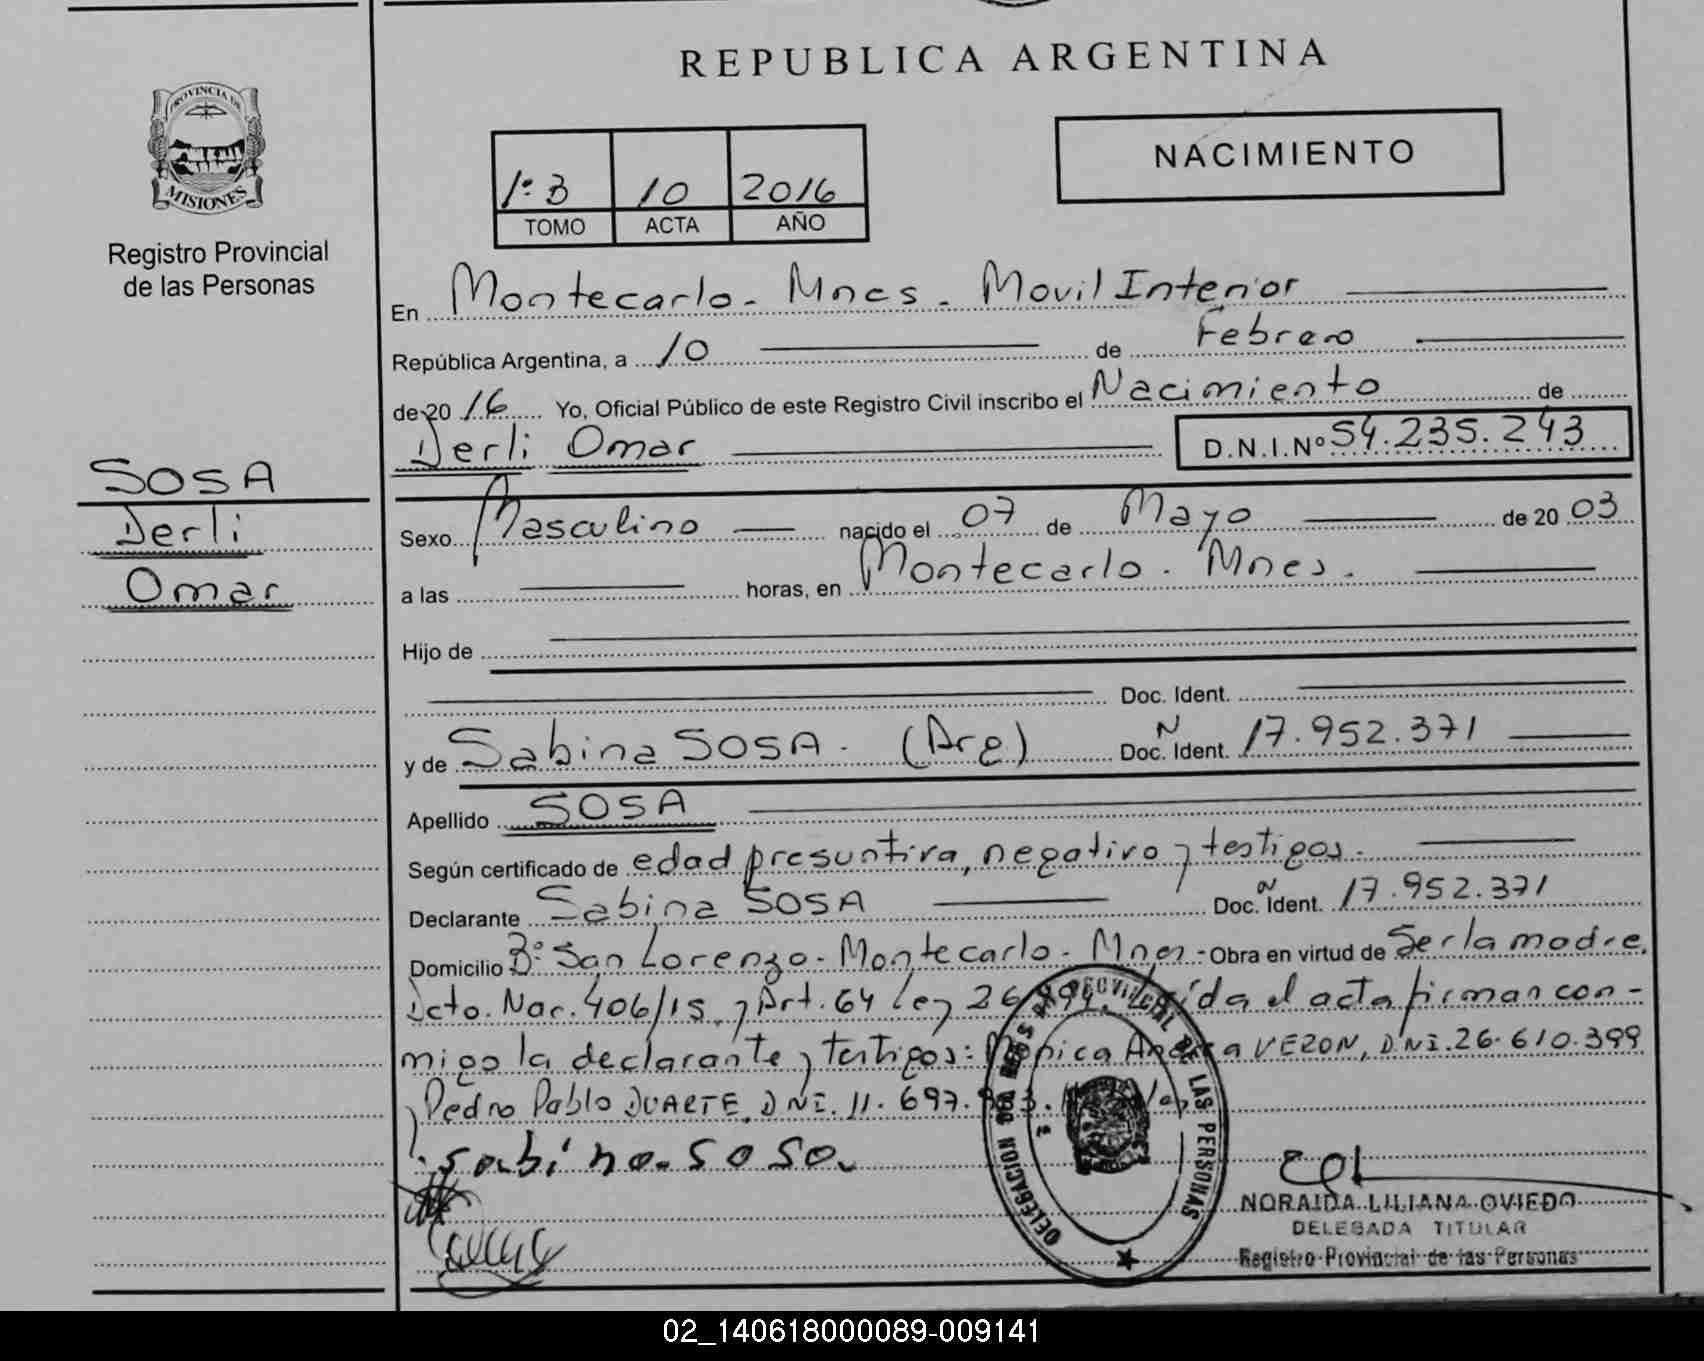 REPUBLICA ARGENTINA
PROVINCIA DE
MISIONES
Registro Provincial
de las Personas
NACIMIENTO
1º B 10 2016
TOMO ACTA AÑO
En Montecarlo - Mnes - Movil Interior
República Argentina, a 10 de Febrero
de 20 16 Yo, Oficial Público de este Registro Civil inscribo el Nacimiento de
Derli Omar D.N.I.Nº 54.235.243
SOSA
Derli
Omar
Sexo Masculino nacido el 07 de Mayo de 20 03
a las horas, en Montecarlo - Mnes.
Hijo de
Doc. Ident.
y de Sabina SOSA - (Arg) Doc. Ident. N 17.952.371
Apellido SOSA
Según certificado de edad presuntiva, negativo y testigos.
Declarante Sabina SOSA Doc. Ident. N 17.952.371
Domicilio Bº San Lorenzo - Montecarlo - Mnes - Obra en virtud de Ser la madre.
Dcto. Nac. 406/15 y Art. 64 Ley 26 Leída el acta firman con-
migo la declarante y testigos: Monica Andrea VERON, DNI. 26.610.399
y Pedro Pablo DUARTE, DNI. 11.697.
sabina sosa
DELEGACION REGISTRO PROVINCIAL DE LAS PERSONAS
NORAIDA LILIANA OVIEDO
DELEGADA TITULAR
Registro Provincial de las Personas
02_140618000089-009141